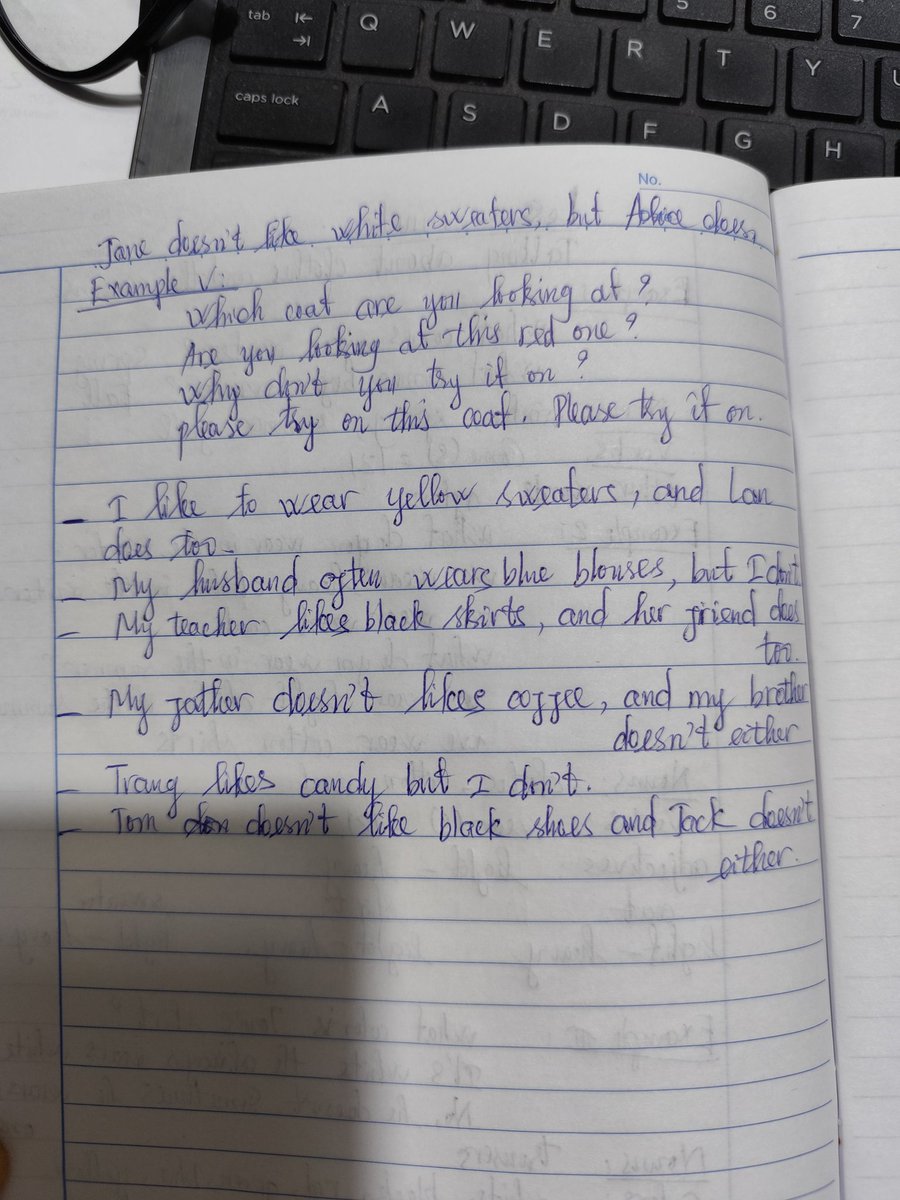 tab
Q
W
E
R
T
Y
5
6
7
caps lock
A
S
D
F
G
H
No.
Jane doesn't like white sweaters, but does.
Example V:
Which coat are you looking at?
Are you looking at this red one?
Why don't you try it on?
please try on this coat. Please try it on.
- I like to wear yellow sweaters, and Lan
does too.
- My husband often wears blue blouses, but I don't
- My teacher likes black skirts, and her friend does
too.
- My father doesn't likes coffee, and my brother
doesn't either
- Trang likes candy but I don't.
- Tom doesn't like black shoes and Jack doesn't
either.